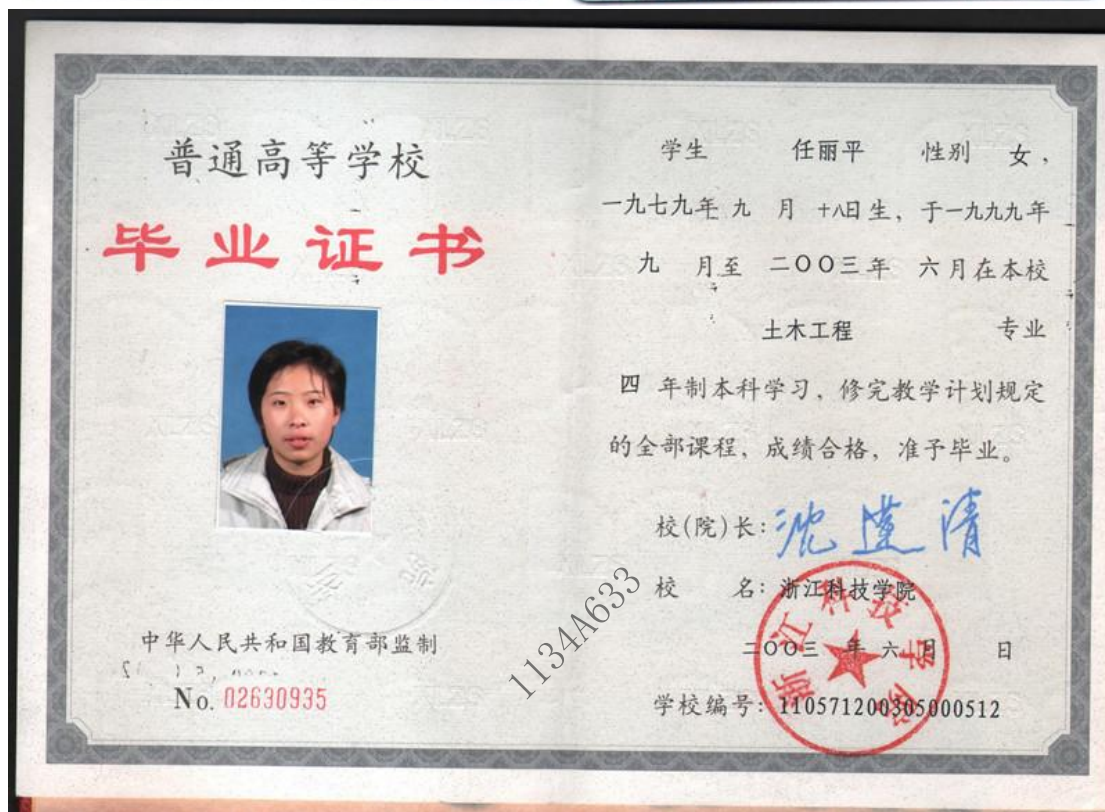 普通高等学校
毕业证书
中华人民共和国教育部监制
No. 02630935
学生 任丽平 性别 女，
一九七九年 九 月 十八日生，于一九九九年
九 月至 二〇〇三年 六月在本校
土木工程 专业
四 年制本科学习，修完教学计划规定
的全部课程，成绩合格，准予毕业。
校(院)长：
校 名：浙江科技学院
二〇〇三 年 六 月 日
学校编号：110571200305000512
浙江科技学院
1134A633